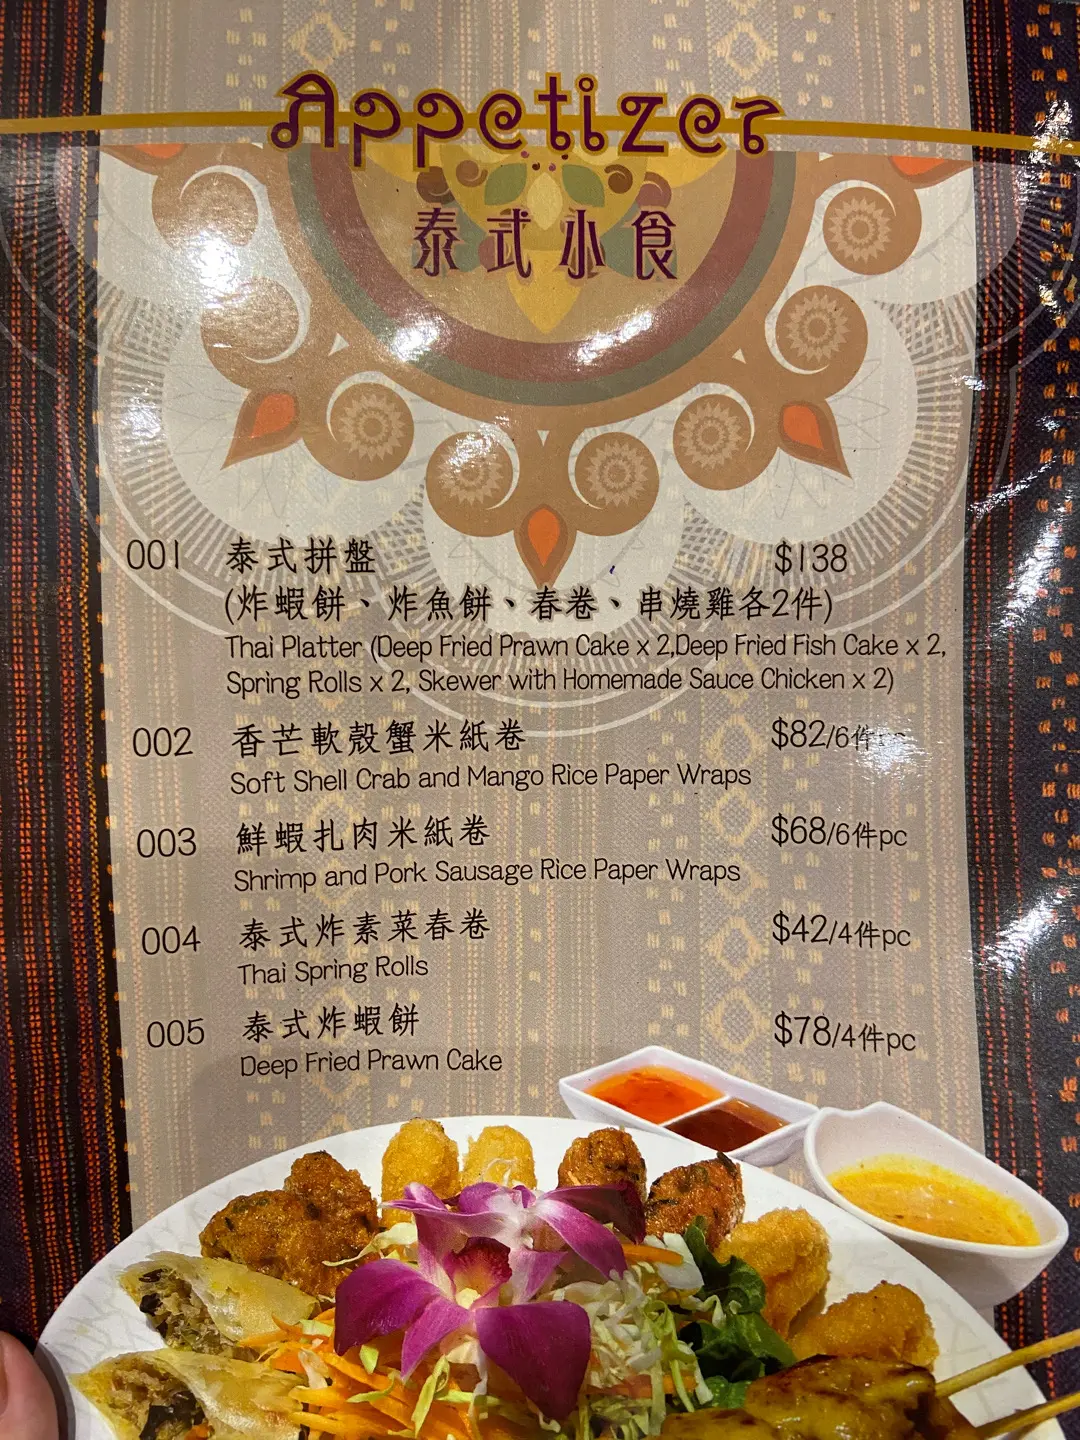 Appetizer
泰式小食
001 泰式拼盤 $138
(炸蝦餅、炸魚餅、春卷、串燒雞各2件)
Thai Platter (Deep Fried Prawn Cake x 2,Deep Fried Fish Cake x 2,
Spring Rolls x 2, Skewer with Homemade Sauce Chicken x 2)
002 香芒軟殼蟹米紙卷 $82/6件pc
Soft Shell Crab and Mango Rice Paper Wraps
003 鮮蝦扎肉米紙卷 $68/6件pc
Shrimp and Pork Sausage Rice Paper Wraps
004 泰式炸素菜春卷 $42/4件pc
Thai Spring Rolls
005 泰式炸蝦餅 $78/4件pc
Deep Fried Prawn Cake